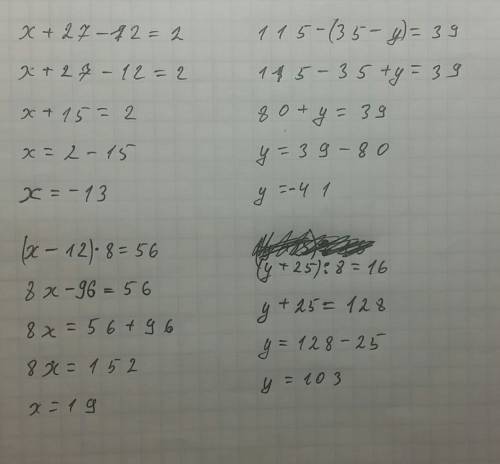 x + 27 - 12 = 2
x + 27 - 12 = 2
x + 15 = 2
x = 2 - 15
x = -13
(x - 12) · 8 = 56
8x - 96 = 56
8x = 56 + 96
8x = 152
x = 19
115 - (35 - y) = 39
115 - 35 + y = 39
80 + y = 39
y = 39 - 80
y = -41
(y + 25) : 8 = 16
y + 25 = 128
y = 128 - 25
y = 103